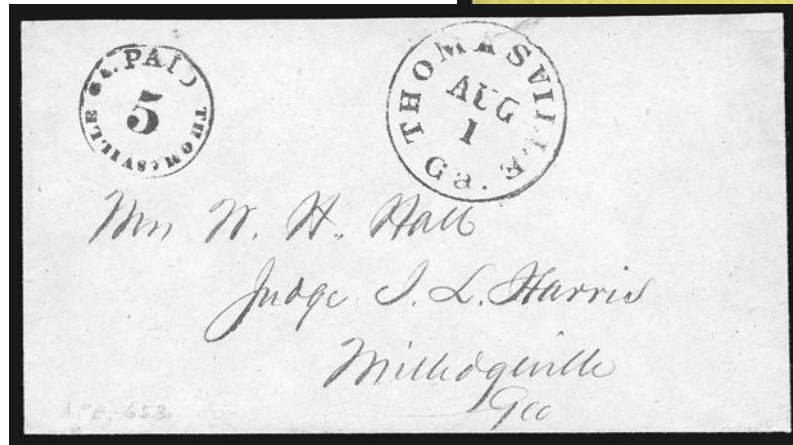 GA. PAID
5
THOMASVILLE
THOMASVILLE
AUG
1
Ga.
Mrs W. H. Hall
Judge I. L. Harris
Milledgeville
Geo